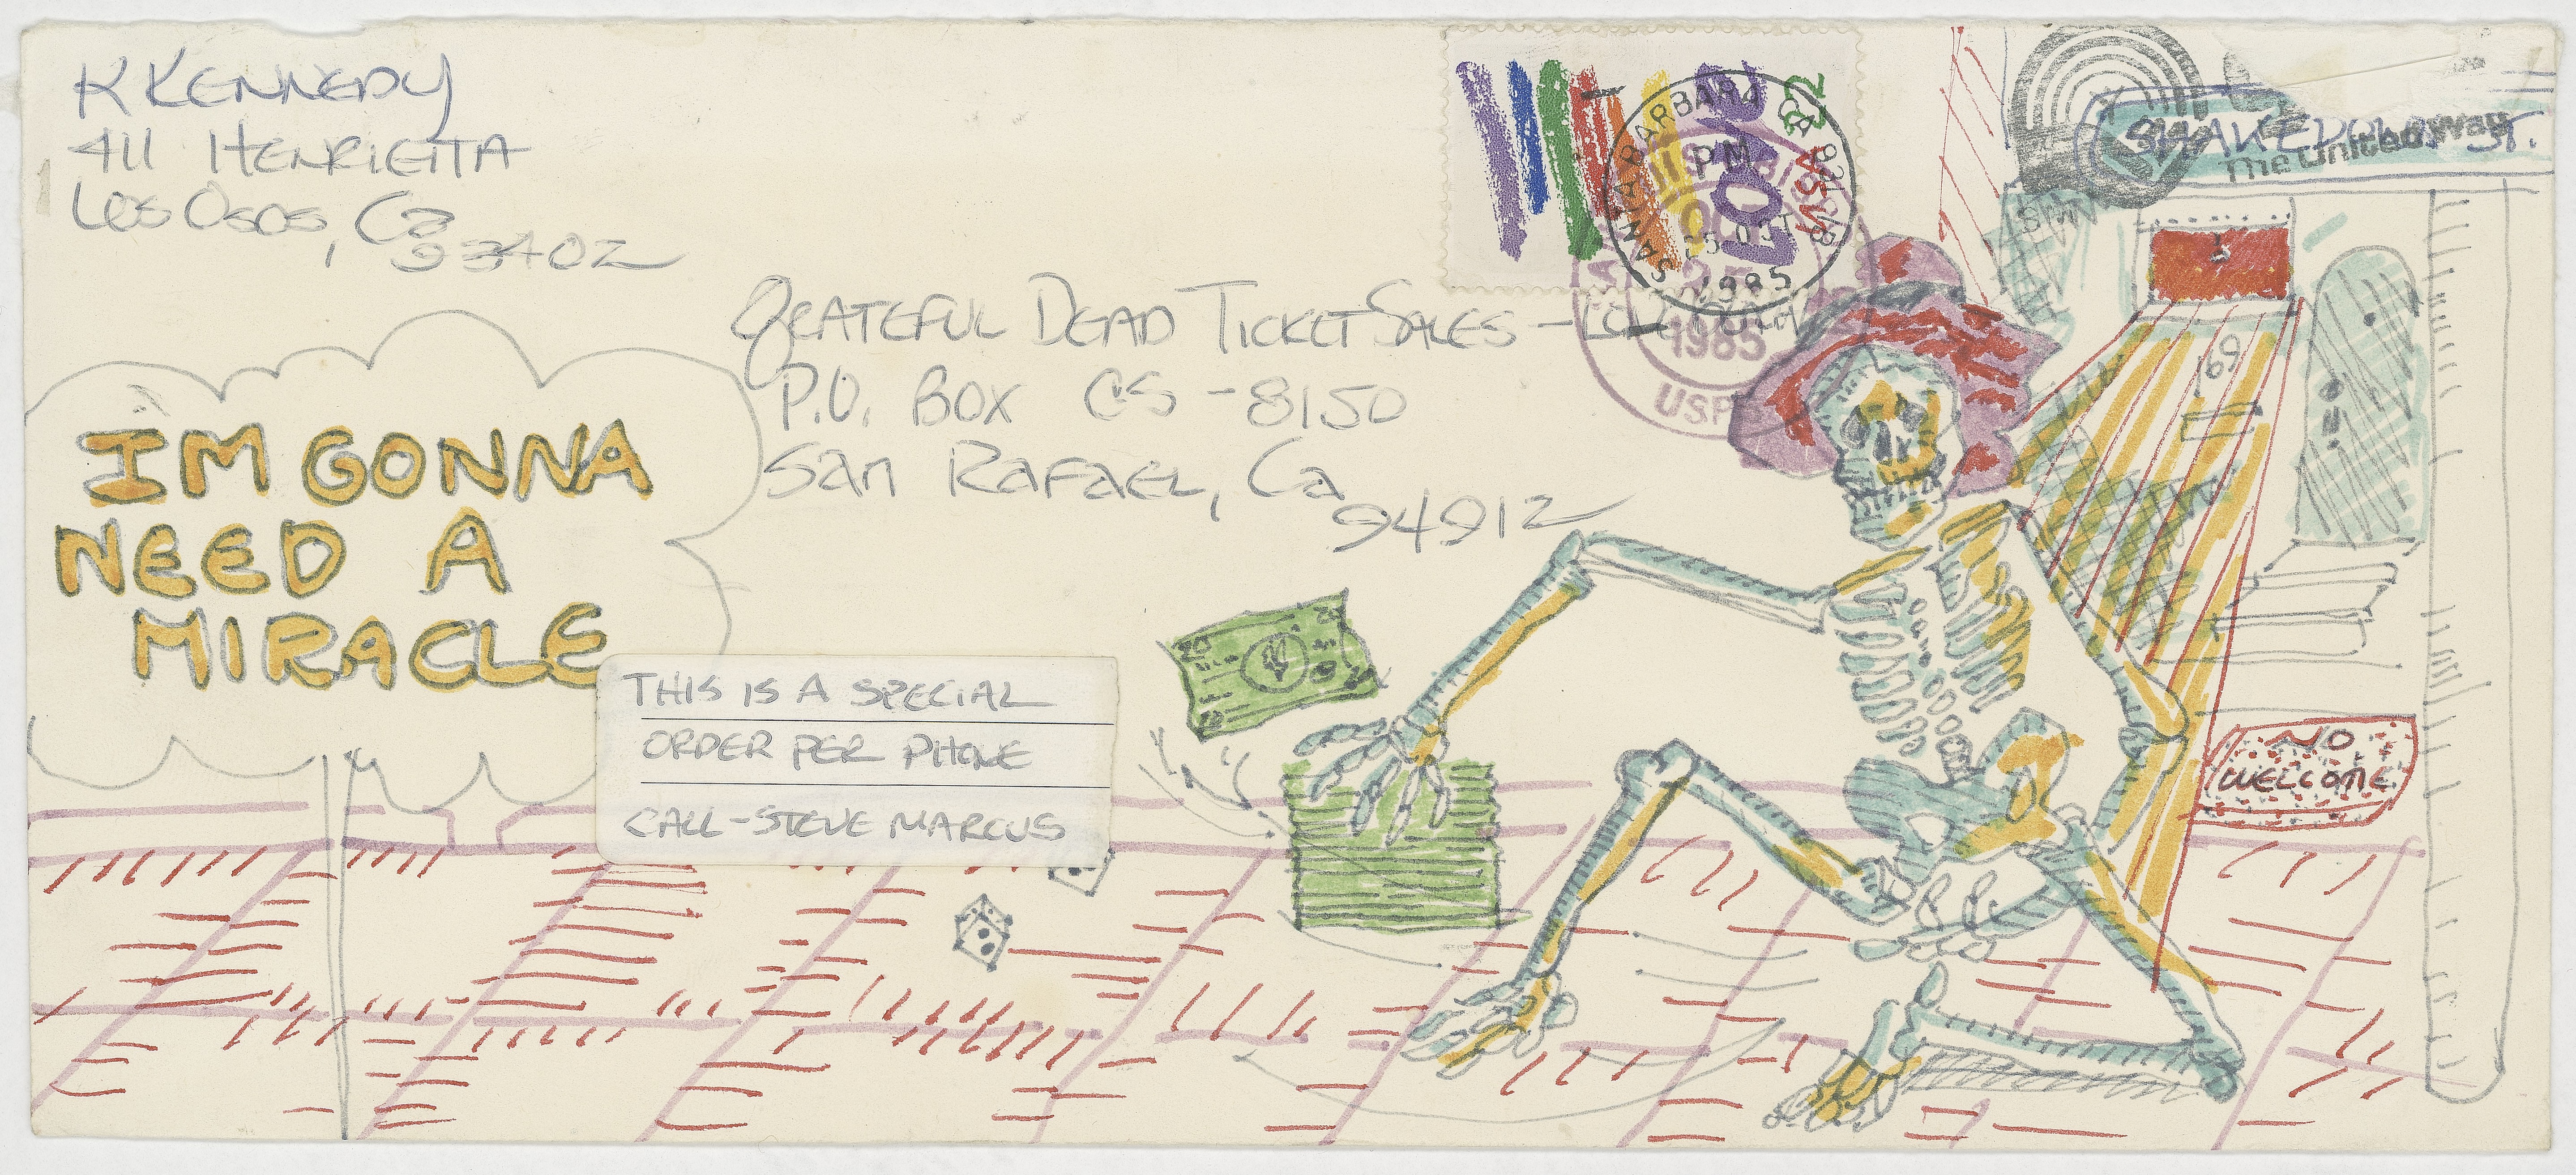 K KENNEDY
411 HENRIETTA
Los Osos, Ca
93402
LOVE
22
USA
SANTA BARBARA CA 931
PM
25 OCT
1985
25
1985
USPS
The United Way
SHAKEDOWN ST.
GRATEFUL DEAD TICKET SALES -
P.O. BOX CS-8150
San Rafael, Ca
94912
IM GONNA
NEED A
MIRACLE
THIS IS A SPECIAL
ORDER PER PHONE
CALL - STEVE MARCUS
20
NO
WELCOME